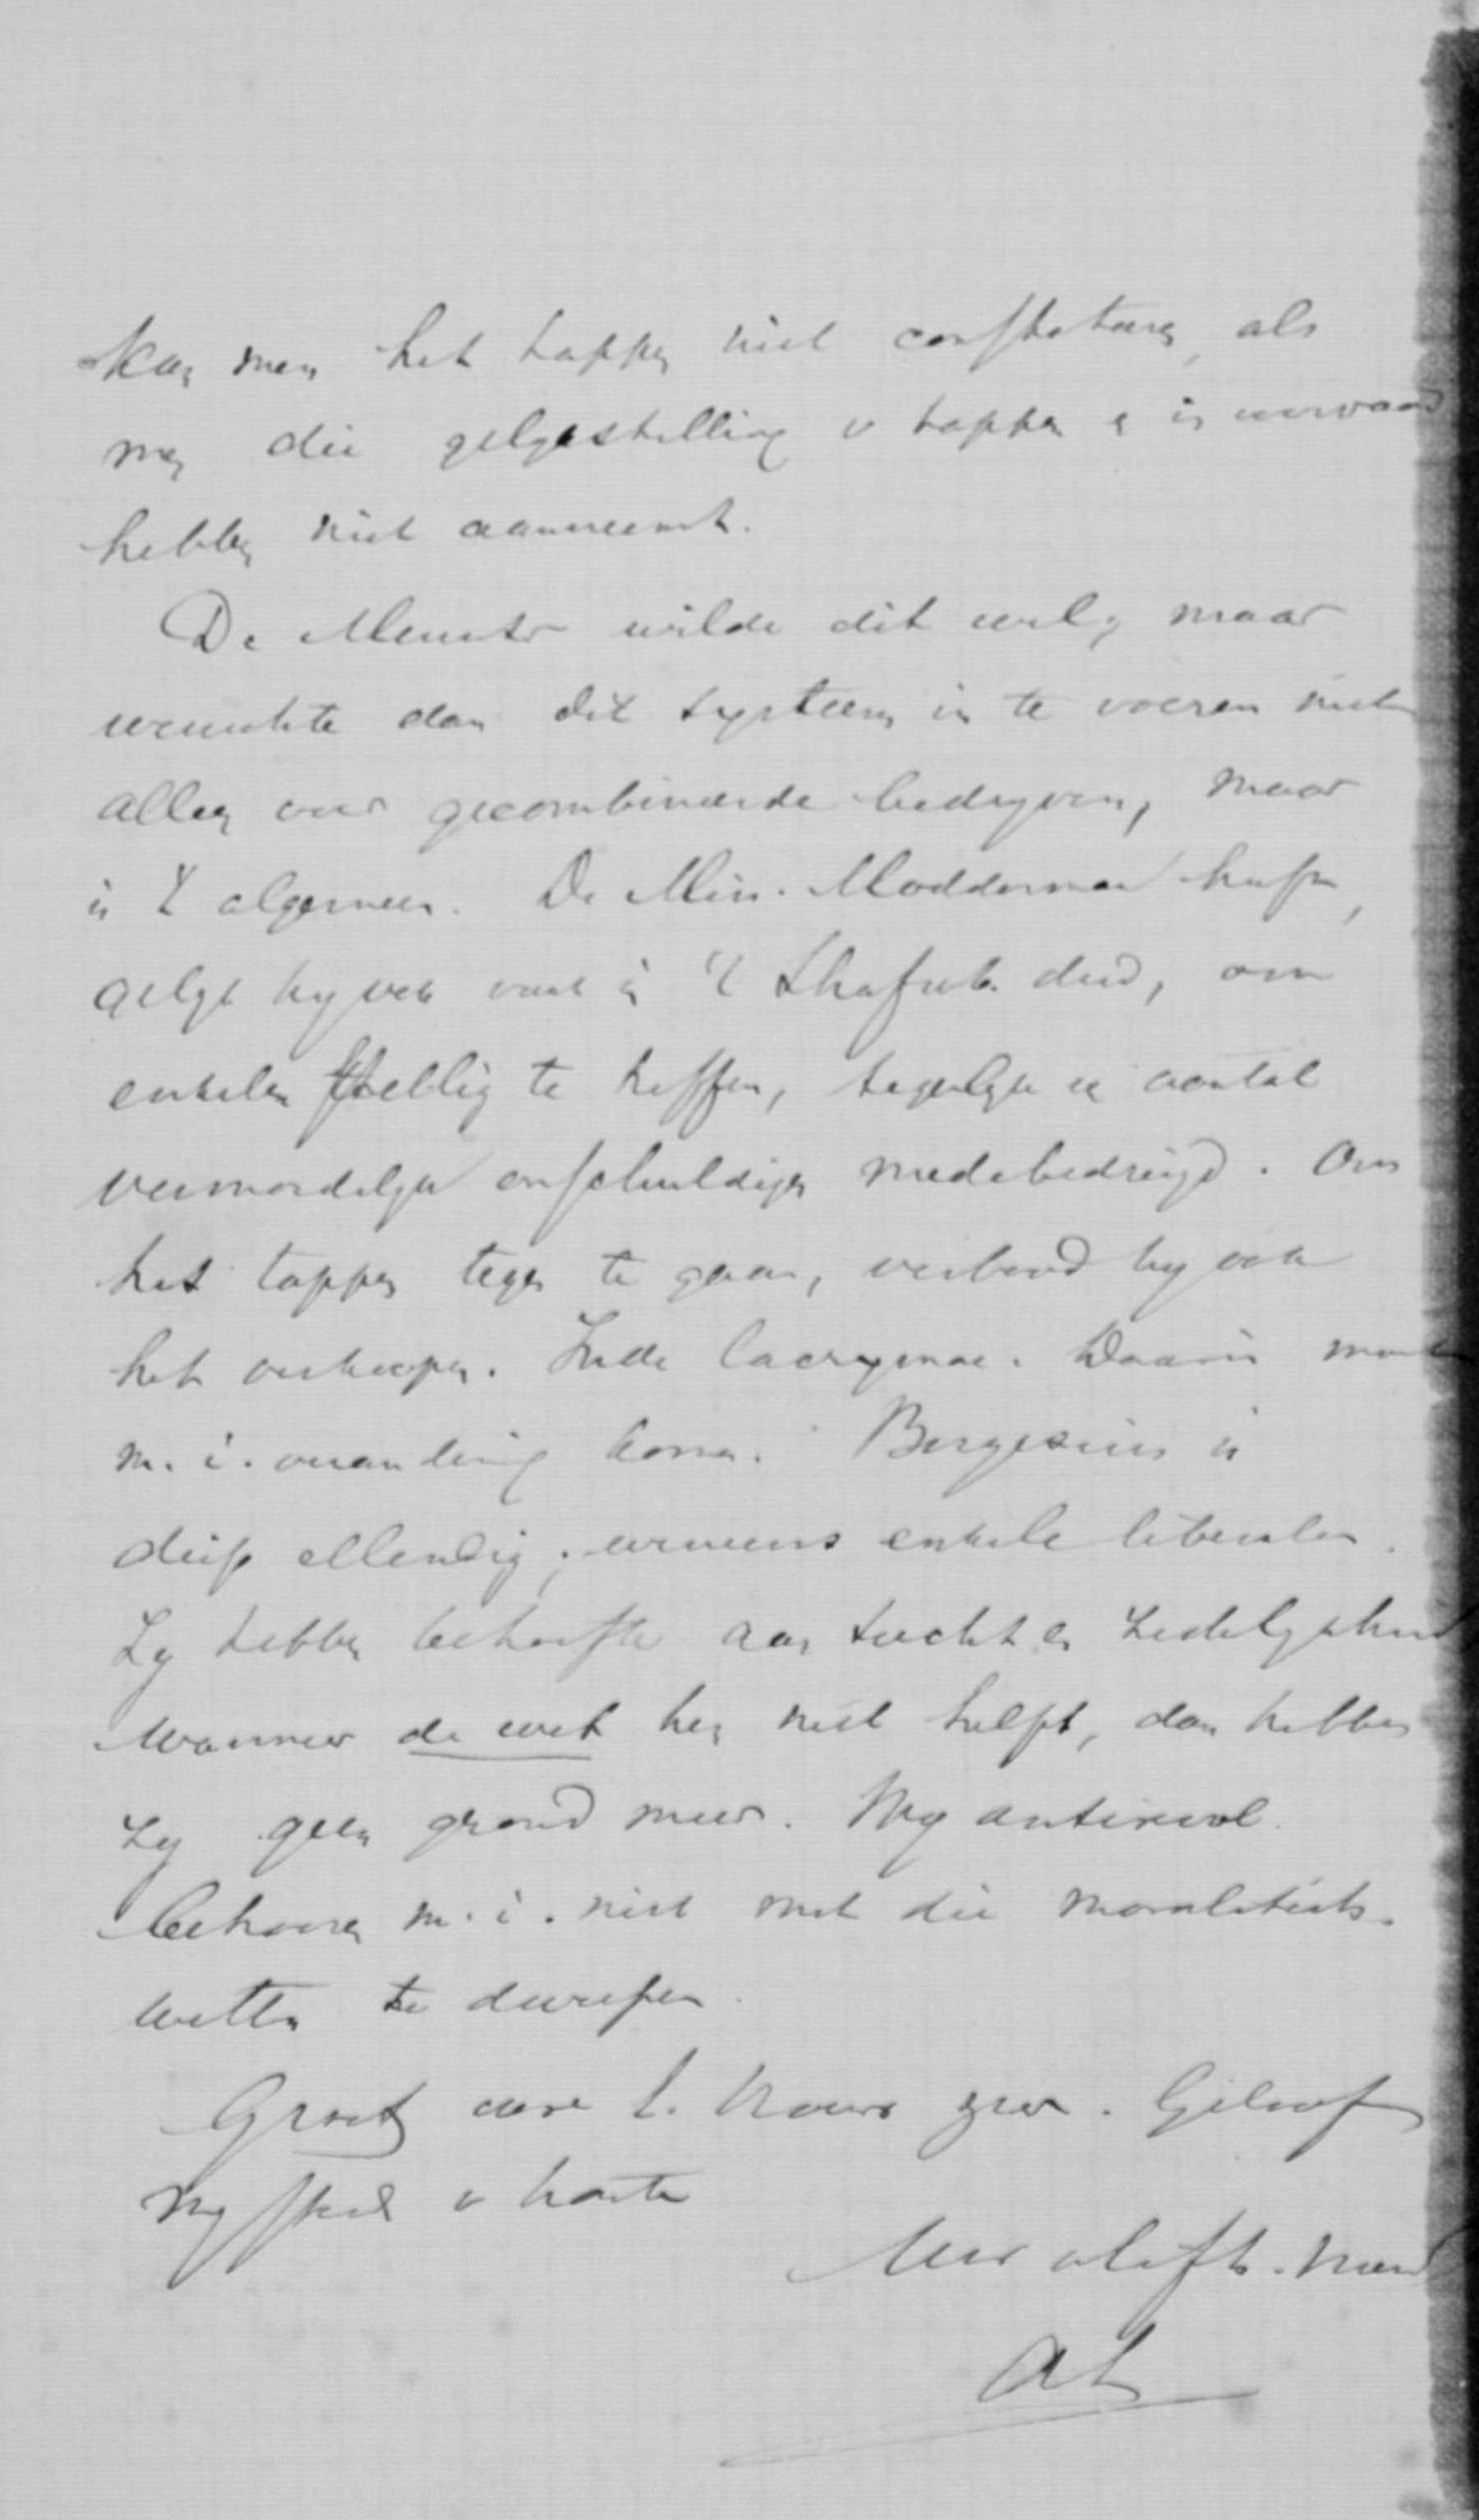 kan men het tappen niet constateeren, als
men die gelykstelling v tappen en in voorraad
hebben niet aanneemt.
De Minister wilde dit wel, maar
wenschte dan dit systeem in te voeren niet
alleen voor gecombineerde bedryven, maar
in 't algemeen. De Min. Modderman heeft,
gelyk hy ook vaak in 't Strafwb. deed, om
enkelen schuldig te treffen, tegelyk een aantal
vermoedelyk onschuldigen medebedreigd. Om
het tappen tegen te gaan, verbood hy ook
het verkoopen. Inde lacrymae. Daarin moet
m. i. verandering komen. Borgesius is
diep ellendig; eveneens enkele liberalen.
Zy hebben behoefte aan tucht en zedelykheid
Wanneer de wet hen niet helpt, dan hebben
zy geen grond meer. Wy antirevol.
behooren m. i. niet met die moraliteits-
wetten te dweepen.
Groet uwe l. vrouw zeer. Geloof
my steeds v harte
Uw liefh. vriend